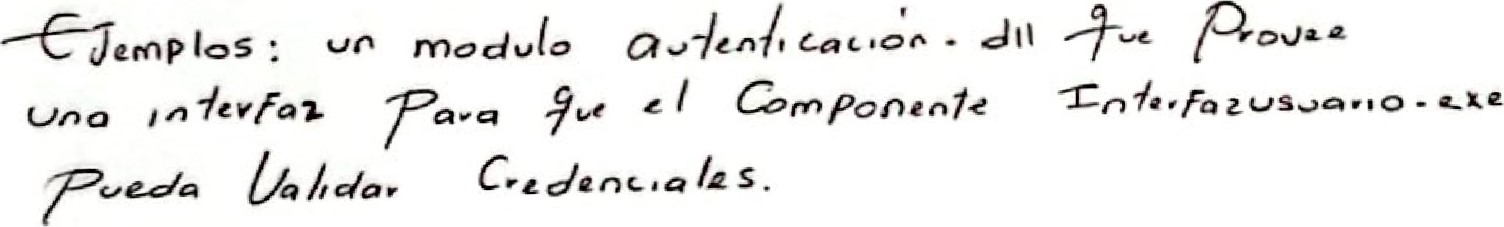 Ejemplos: un modulo autenticación.dll que Provee
una interfaz Para que el Componente Interfazusuario.exe
Pueda Validar Credenciales.